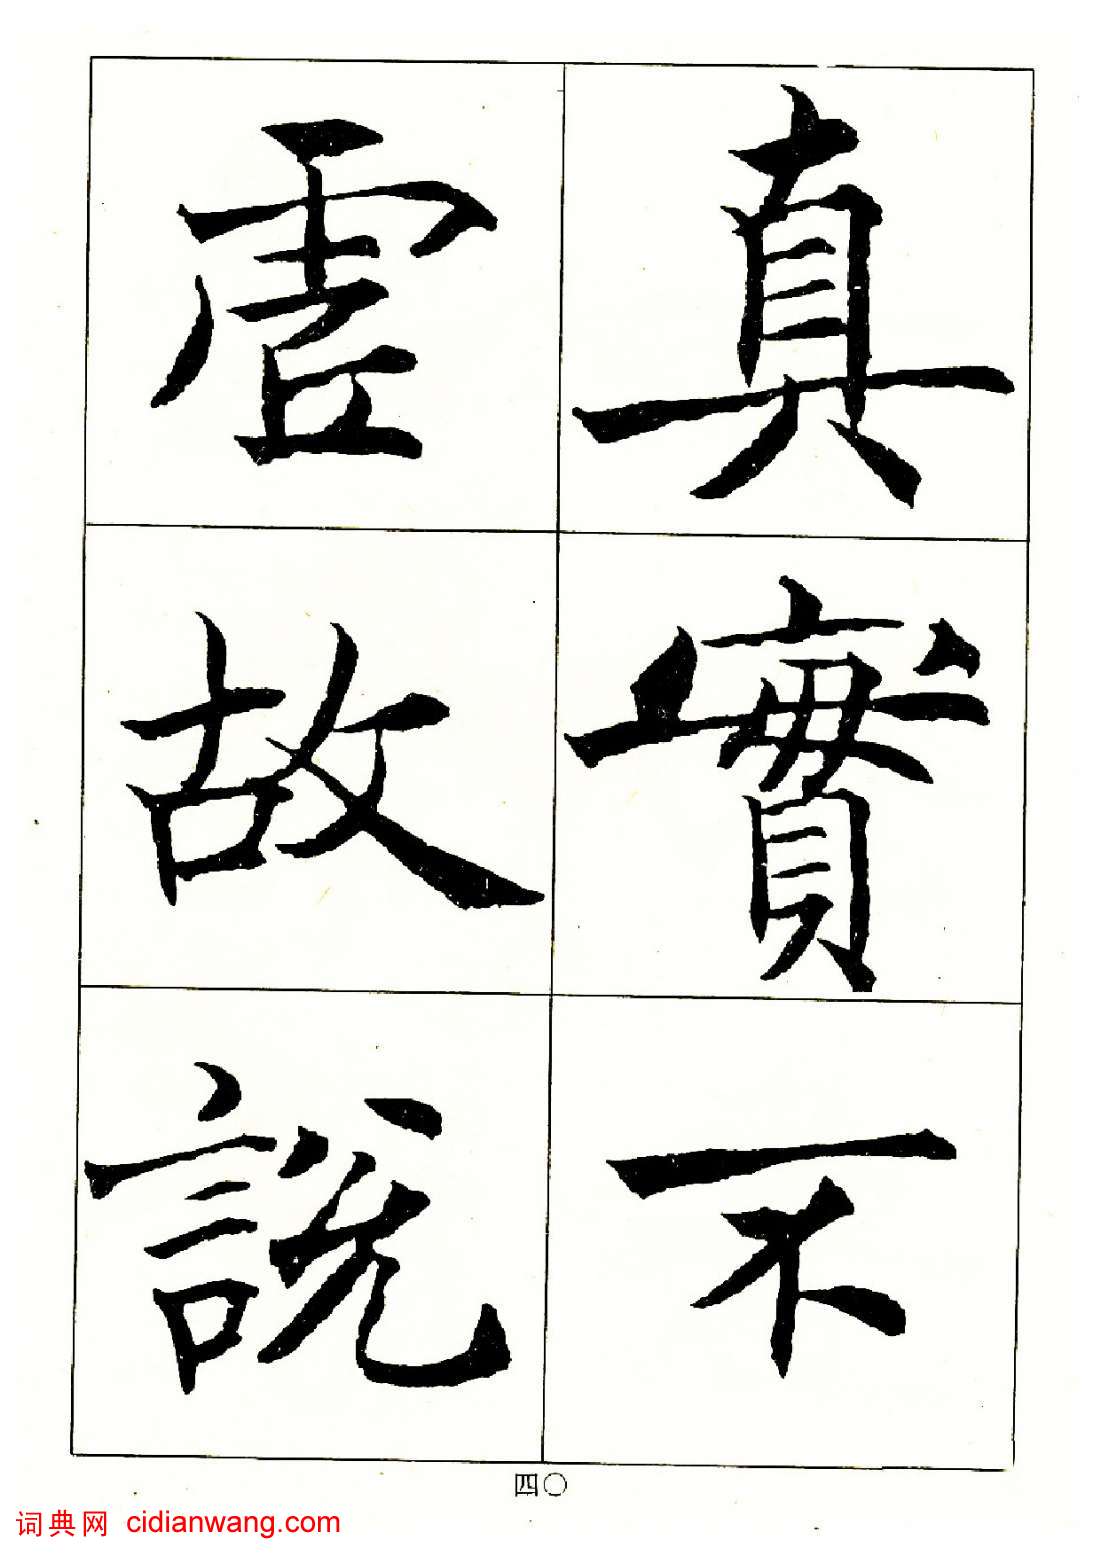 真實不
虛故說
四〇
词典网 cidianwang.com